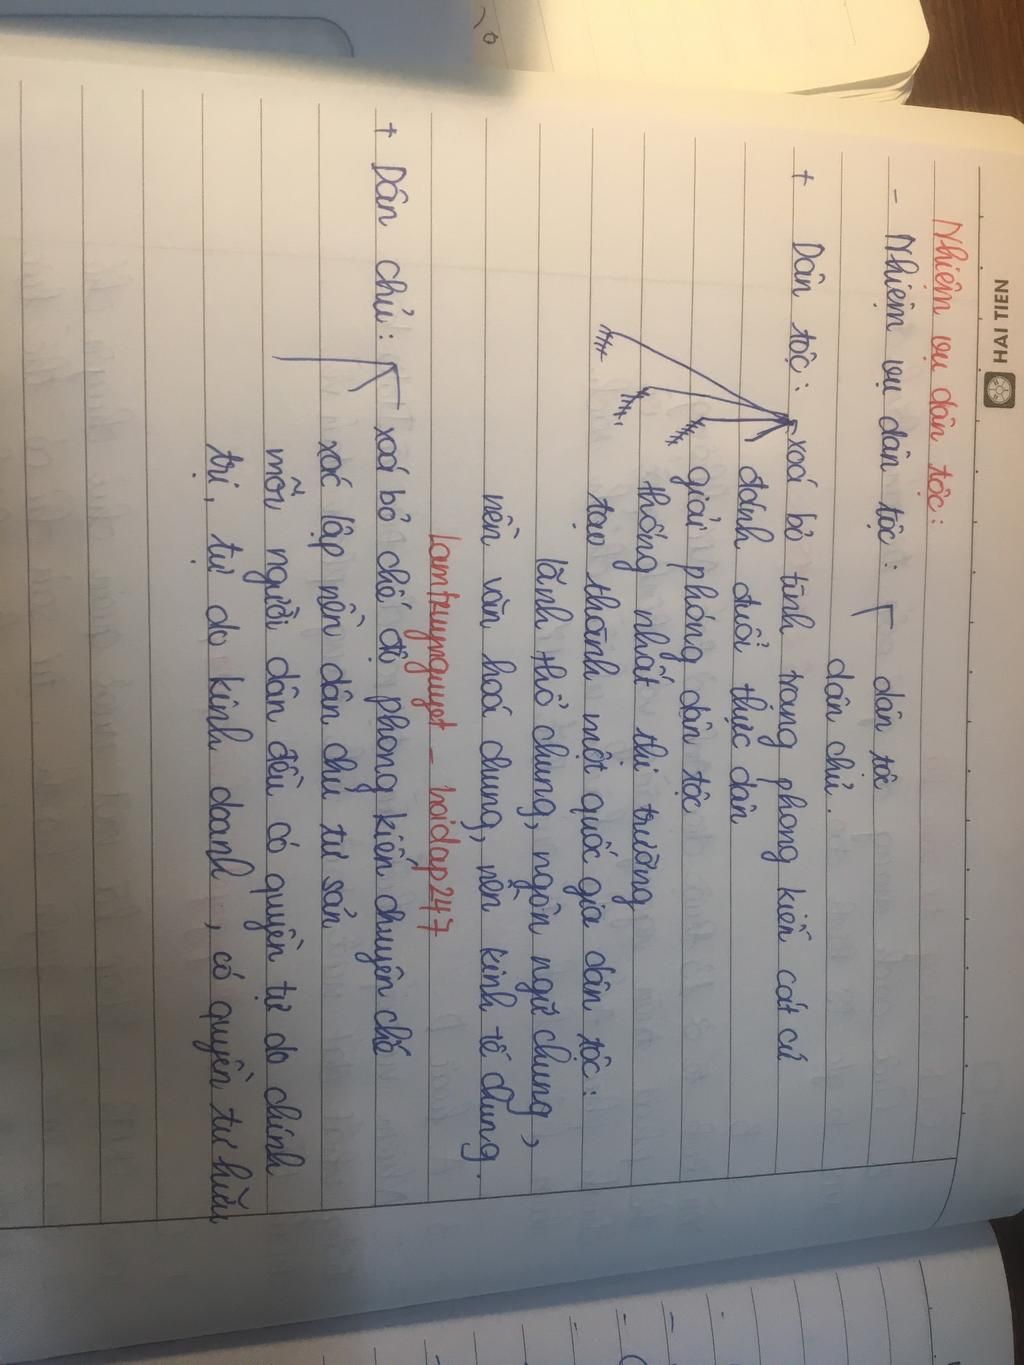 HẢI TIẾN
Nhiệm vụ dân tộc:
- Nhiệm vụ dân tộc: dân tộc
dân chủ.
+ Dân tộc: xoá bỏ tình trạng phong kiến cát cứ
đánh đuổi thực dân
giải phóng dân tộc
thống nhất thị trường
tạo thành một quốc gia dân tộc:
lãnh thổ chung, ngôn ngữ chung,
nền văn hoá chung, nền kinh tế chung.
lamtruynguyet - hoidap247
+ Dân chủ: xoá bỏ chế độ phong kiến chuyên chế
xác lập nền dân chủ tư sản
mỗi người dân đều có quyền tự do chính
trị, tự do kinh doanh, có quyền tư hữu